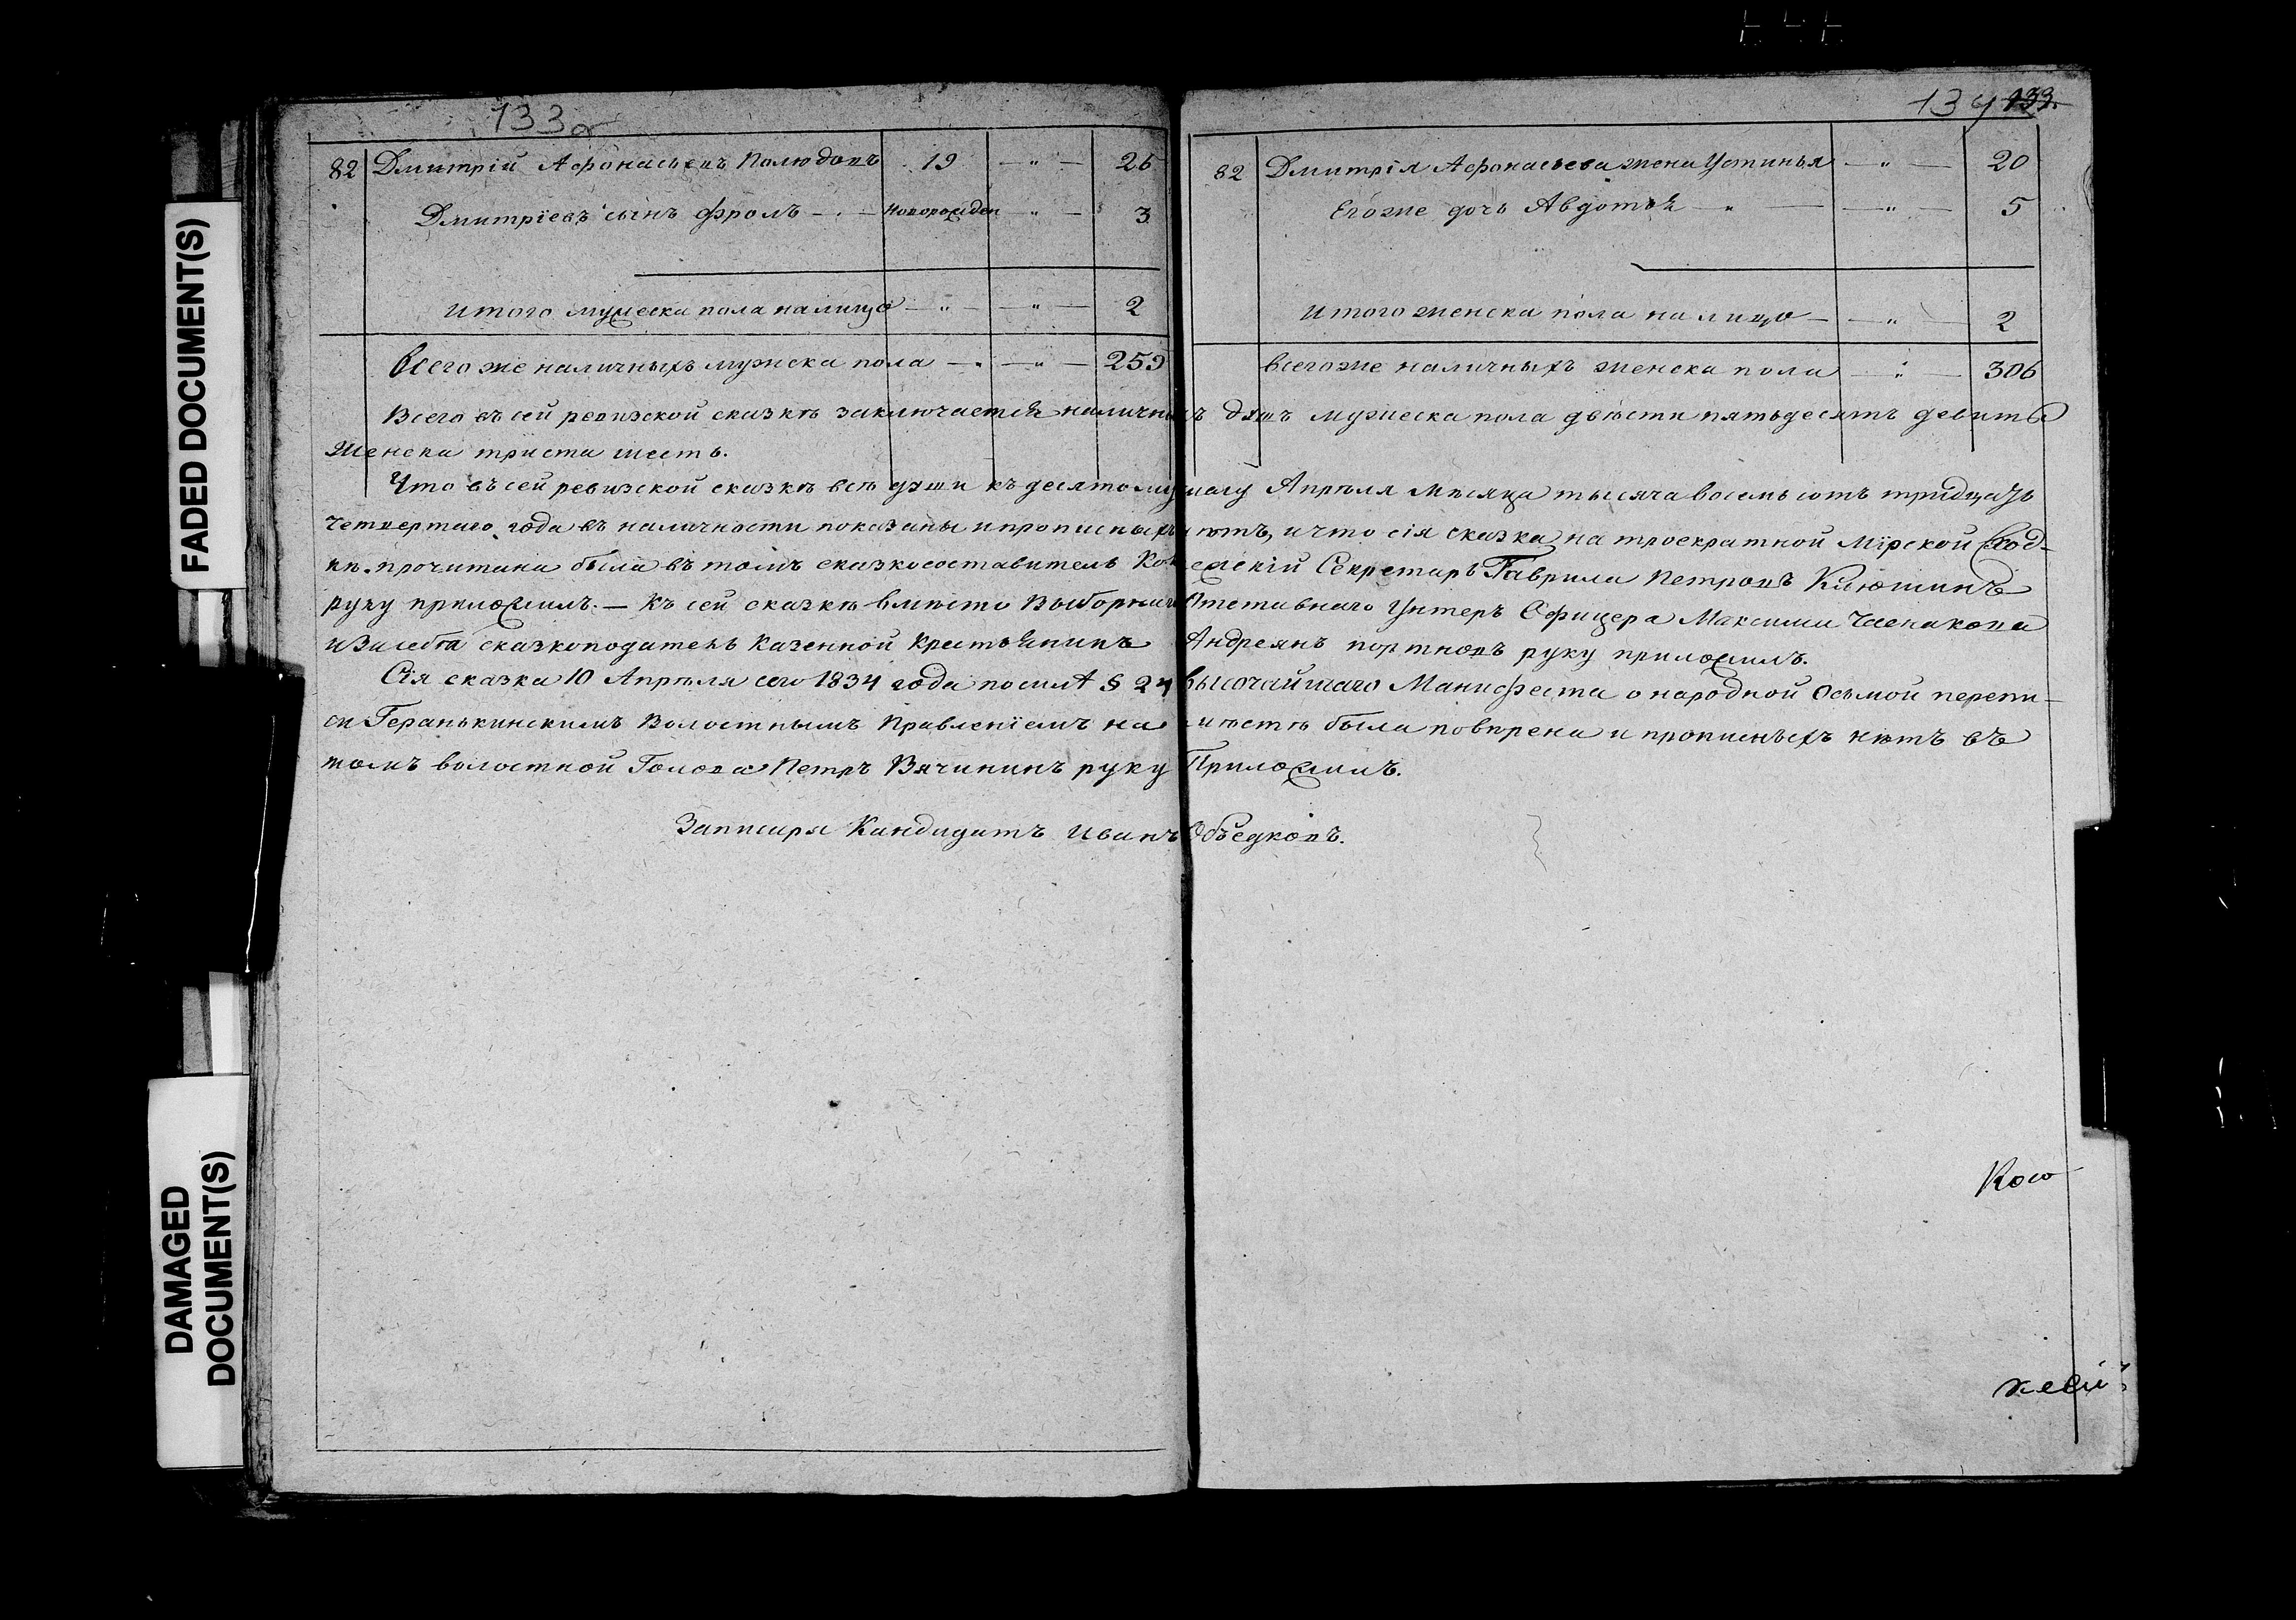 133 об
134 133.
82 Дмитрій Афонасьевъ Полюдовъ 19 — " — 26
Дмитріевъ сынъ Фролъ — новорожден — " — 3
Итого мужеска пола налицо — " — — " — 2
Всего же наличныхъ мужска пола — " — — " — 259
82 Дмитрія Афонасьева жена Устинья — " — 20
Его же дочь Авдотья — " — — " — 5
Итого женска пола на лицо — — " — 2
всего же наличныхъ женска пола — " — 306
Всего въ сей ревизской сказкѣ заключается наличныхъ душъ мужеска пола двѣсти пятьдесятъ девять
Женска триста шесть.
Что въ сей ревизской сказкѣ всѣ души къ десятому числу Апрѣля Мѣсяца тысяча восемь сотъ тридцать
четвертаго года въ наличности показаны и прописныхъ нѣтъ, и что сія сказка на троекратной Мірской Сход-
кѣ прочитана была въ томъ сказкосоставитель Секретарь Гаврила Петровъ Клюшинъ
руку приложилъ. — Къ сей сказкѣ вместо Выборнаго Отставнаго Унтеръ Офицера Максима
и За себя сказкоподатель Казенной Крестьянинъ Андреянъ портновъ руку приложилъ.
Сія сказка 10 Апрѣля сего 1834 года по силѣ § 24 Высочайшаго Манифеста о народной осьмой перепи-
си Геранькинскимъ Волостнымъ Правленіемъ на мѣстѣ была повѣрена и прописныхъ нѣтъ въ
томъ волостной Голова Петръ Вячининъ руку Приложилъ.
Запи­саря Кандидатъ Иванъ Объедковъ.
FADED DOCUMENT(S)
DAMAGED
DOCUMENT(S)